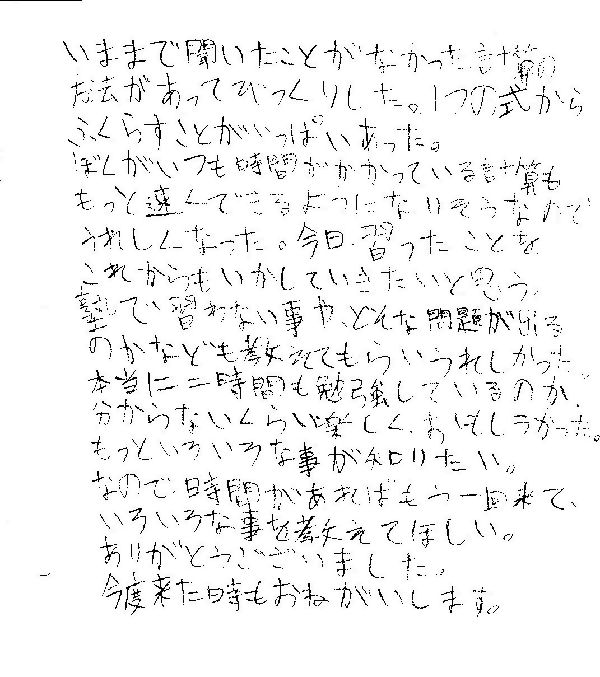 いままで聞いたことがなかった計算の
方法があってびっくりした。1つの式から
ふくらすことがいっぱいあった。
ぼくがいつも時間がかかっている計算も
もっと速くできるようになりそうなので
うれしくなった。今日、習ったことを
これからもいかしていきたいと思う。
塾で習わない事や、どんな問題が出る
のかなども教えてもらいうれしかった。
本当に二時間も勉強しているのか、
分からないくらい楽しく、おもしろかった。
もっといろいろな事が知りたい。
なので、時間があればもう一回来て、
いろいろな事を教えてほしい。
ありがとうございました。
今度来た時もおねがいします。